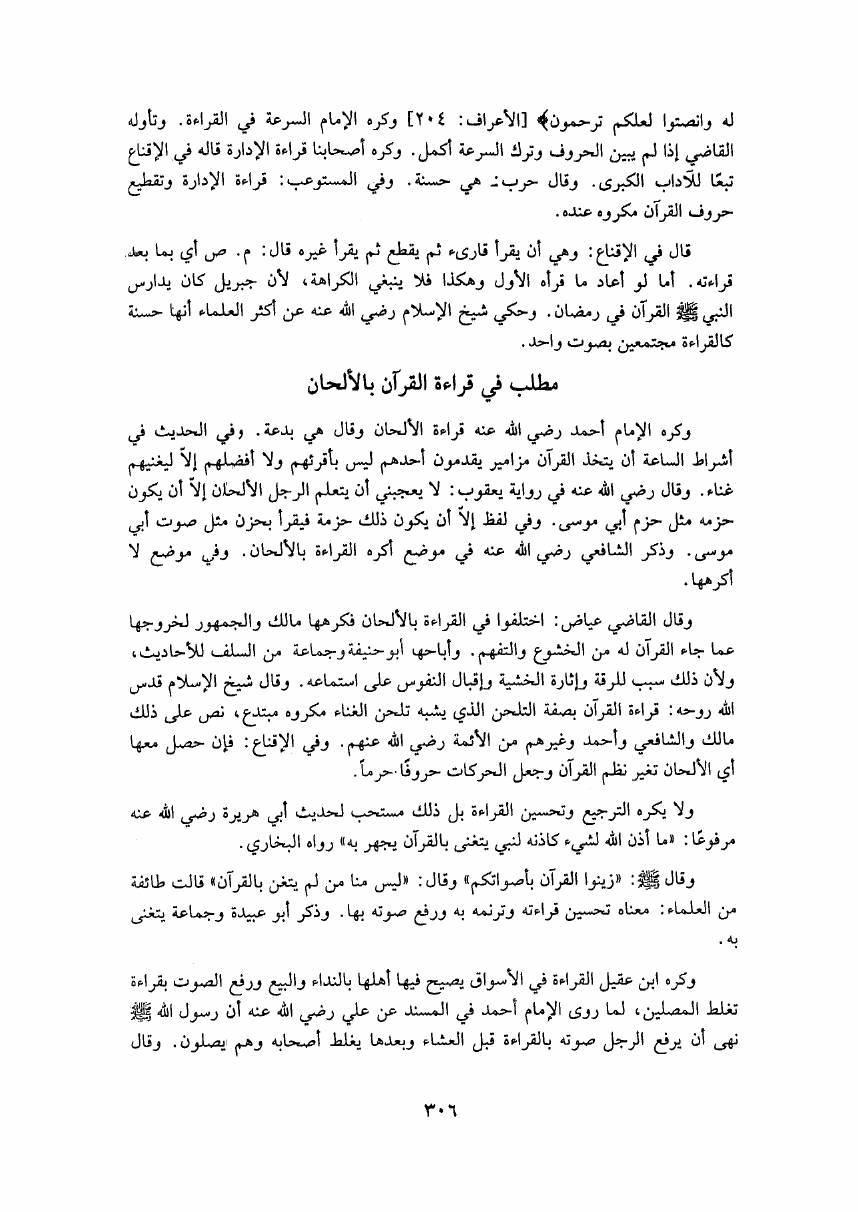 له وانصتوا لعلكم ترحمون﴾ [الأعراف: ٢٠٤] وكره الإمام السرعة في القراءة. وتأوله
القاضي إذا لم يبين الحروف وترك السرعة أكمل. وكره أصحابنا قراءة الإدارة قاله في الإقناع
تبعًا للآداب الكبرى. وقال حرب: هي حسنة. وفي المستوعب: قراءة الإدارة وتقطيع
حروف القرآن مكروه عنده.
قال في الإقناع: وهي أن يقرأ قارىء ثم يقطع ثم يقرأ غيره قال: م. ص أي بما بعد
قراءته. أما لو أعاد ما قرأه الأول وهكذا فلا ينبغي الكراهة، لأن جبريل كان يدارس
النبي ﷺ القرآن في رمضان. وحكي شيخ الإسلام رضي الله عنه عن أكثر العلماء أنها حسنة
كالقراءة مجتمعين بصوت واحد.
مطلب في قراءة القرآن بالألحان
وكره الإمام أحمد رضي الله عنه قراءة الألحان وقال هي بدعة. وفي الحديث في
أشراط الساعة أن يتخذ القرآن مزامير يقدمون أحدهم ليس بأقرئهم ولا أفضلهم إلاّ ليغنيهم
غناء. وقال رضي الله عنه في رواية يعقوب: لا يعجبني أن يتعلم الرجل الألحان إلاّ أن يكون
حزمه مثل حزم أبي موسى. وفي لفظ إلاّ أن يكون ذلك حزمة فيقرأ بحزن مثل صوت أبي
موسى. وذكر الشافعي رضي الله عنه في موضع أكره القراءة بالألحان. وفي موضع لا
أكرهها.
وقال القاضي عياض: اختلفوا في القراءة بالألحان فكرهها مالك والجمهور لخروجها
عما جاء القرآن له من الخشوع والتفهم. وأباحها أبو حنيفة وجماعة من السلف للأحاديث،
ولأن ذلك سبب للرقة وإثارة الخشية وإقبال النفوس على استماعه. وقال شيخ الإسلام قدس
الله روحه: قراءة القرآن بصفة التلحن الذي يشبه تلحن الغناء مكروه مبتدع، نص على ذلك
مالك والشافعي وأحمد وغيرهم من الأئمة رضي الله عنهم. وفي الإقناع: فإن حصل معها
أي الألحان تغير نظم القرآن وجعل الحركات حروفًا حرماً.
ولا يكره الترجيع وتحسين القراءة بل ذلك مستحب لحديث أبي هريرة رضي الله عنه
مرفوعًا: «ما أذن الله لشيء كاذنه لنبي يتغنى بالقرآن يجهر به» رواه البخاري.
وقال ﷺ: «زينوا القرآن بأصواتكم» وقال: «ليس منا من لم يتغن بالقرآن» قالت طائفة
من العلماء: معناه تحسين قراءته وترنمه به ورفع صوته بها. وذكر أبو عبيدة وجماعة يتغنى
به.
وكره ابن عقيل القراءة في الأسواق يصيح فيها أهلها بالنداء والبيع ورفع الصوت بقراءة
تغلط المصلين، لما روى الإمام أحمد في المسند عن علي رضي الله عنه أن رسول الله ﷺ
نهى أن يرفع الرجل صوته بالقراءة قبل العشاء وبعدها يغلط أصحابه وهم يصلون. وقال
٣٠٦